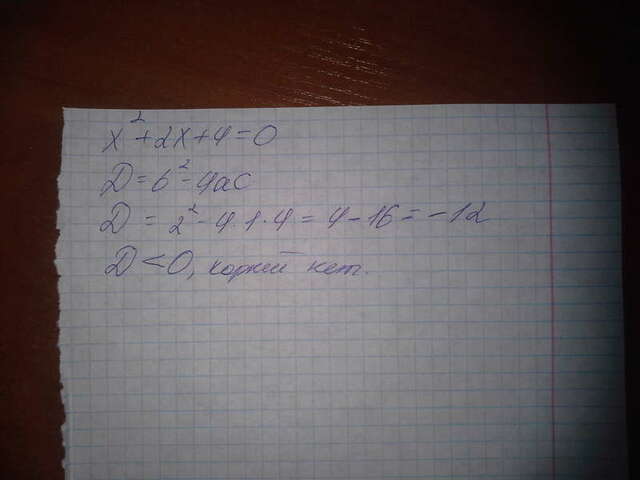 x² + 2x + 4 = 0
D = b² - 4ac
D = 2² - 4·1·4 = 4 - 16 = -12
D < 0, корней нет.